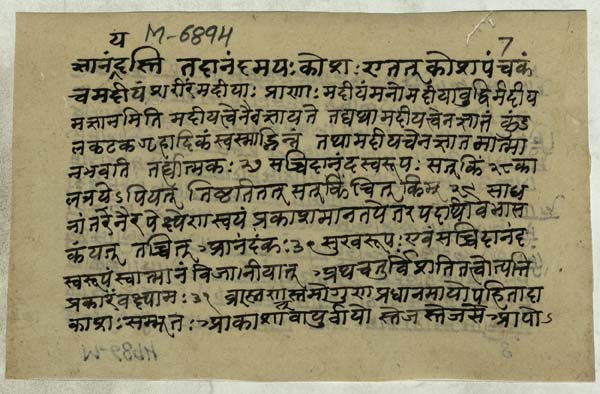 य M-6894 7
ज्ञानंदास्ति तदानंदमयः कोशः एतत् कोशपंचकं
च मदीयं शरीरं मदीयाः प्राणाः मदीयं मनो मदीया बुद्धिर्मदीय
मज्ञानमिति मदीयत्वेनैव ज्ञायते तद्यथा मदीयत्वेन ज्ञातं कुंड
लकटकगृहादिकं स्वस्माद्भिन्नं तथा मदीयत्वेन ज्ञातमात्मा
नभवति तर्ह्यात्मकः २७ सच्चिदानंदस्वरूपः सत् किं २८ का
लत्रयेऽपि यत् तिष्ठति तत् सत् किं चित् किम् २९ साध
नांतरनैरपेक्ष्येण स्वयं प्रकाशमानतयेतरपदार्थावभास
कं यत् तच्चित् आनंदकः ३० सुखस्वरूपः एवं सच्चिदानंद
स्वरूपं स्वात्मानं विजानीयात् अथ चतुर्विंशतितत्त्वोत्पत्ति
प्रकारं वक्ष्यामः ३१ ब्रह्मण सत्वतमोगुण प्रधानमायोपहितादा
काशः सम्भूतः आकाशाद्वायुर्वायो स्तेज स्तेजस आपोऽ